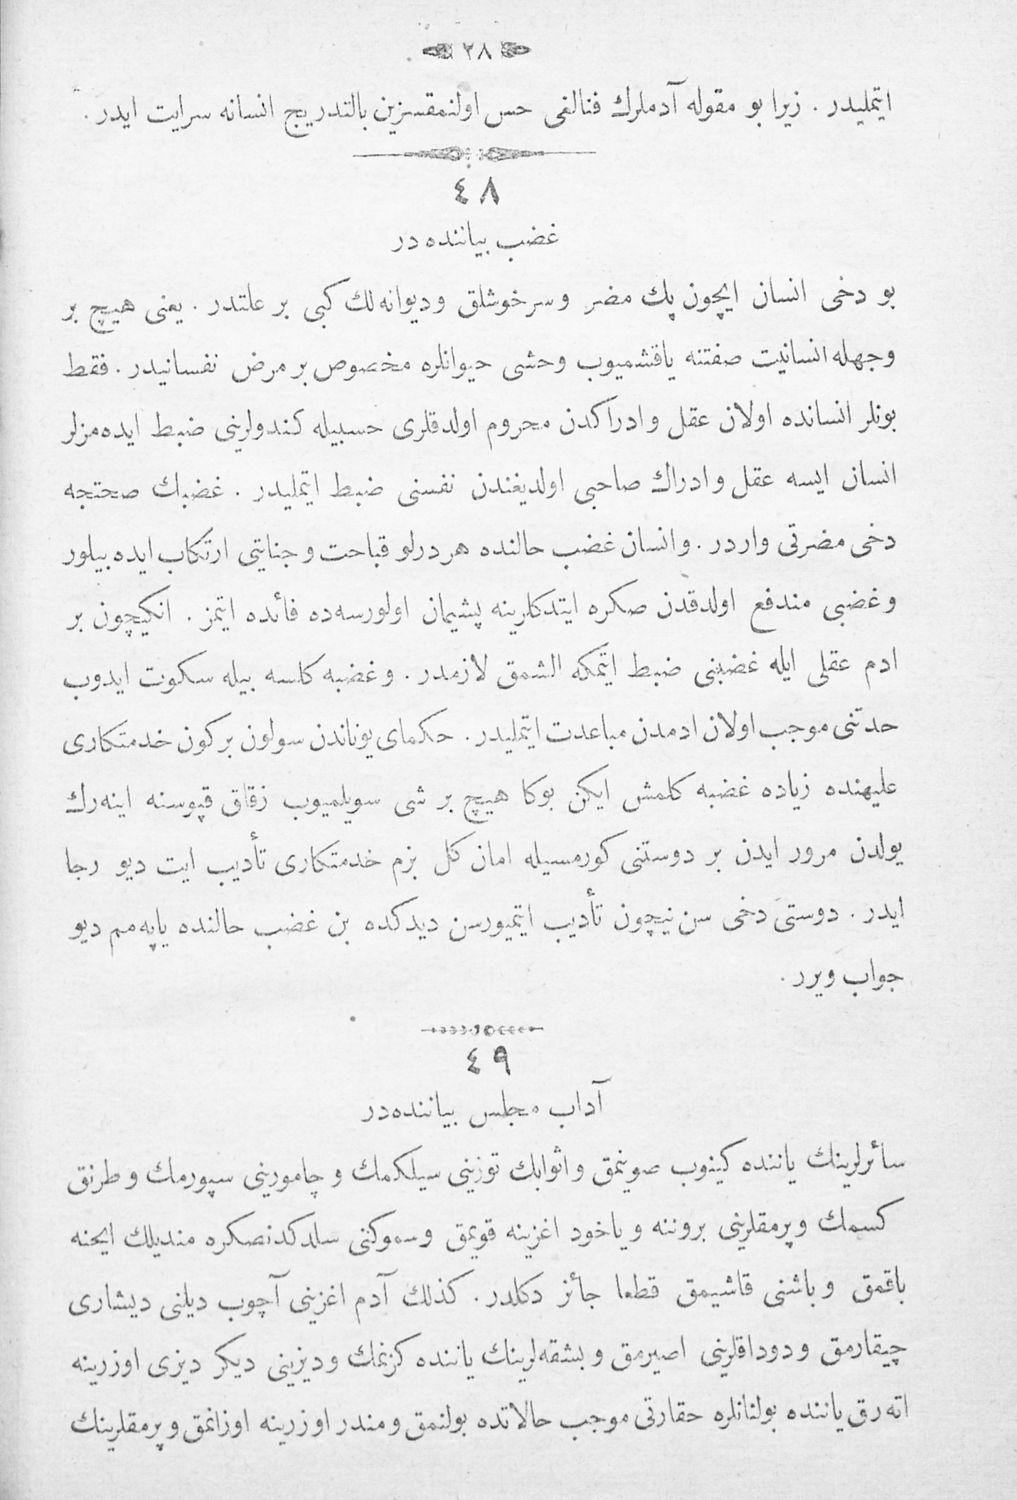 ٣٨
ایتملیدر . زیرا بو مقوله آدملرك فنالغی حس اولنمقسزین بالتدریج انسانه سرایت ایدر .
٤٨
غضب بیاننده در
بو دخی انسان ایچون پك مضر وسرخوشلق ودیوانه لك كبی بر علتدر . یعنی هیچ بر
وجهله انسانیت صفتنه یاقشمیوب وحشی حیوانلره مخصوص بر مرض نفسانیدر . فقط
بونلر انسانده اولان عقل وادراكدن محروم اولدقلری حسبیله كندولرینی ضبط ایده مزلر
انسان ایسه عقل وادراك صاحبی اولدیغندن نفسنی ضبط ایتملیدر . غضبك صحتجه
دخی مضرتی واردر . وانسان غضب حالنده هر درلو قباحت و جنایتی ارتكاب ایده بیلور
وغضبی مندفع اولدقدن صكره ایتدكلرینه پشیمان اولورسه ده فائده ایتمز . انكیچون بر
ادم عقلی ایله غضبنی ضبط ایتمكه الشمق لازمدر . وغضبه كلسه بیله سكوت ایدوب
حدتنی موجب اولان ادمدن مباعدت ایتملیدر . حكمای یوناندن سولون بركون خدمتكاری
علیهنده زیاده غضبه كلمش ایكن بوكا هیچ بر شی سویلمیوب زقاق قپوسنه اینه رك
یولدن مرور ایدن بر دوستنی كورمسیله امان كل بزم خدمتكاری تأدیب ایت دیو رجا
ایدر . دوستی دخی سن نیچون تأدیب ایتمیورسن دیدكده بن غضب حالنده یاپه مم دیو
جواب ویرر .
٤٩
آداب مجلس بیاننده در
سائرلرینك یاننده كینوب صوینمق واثوابك توزینی سیلكمك و چامورینی سپورمك وطرنق
كسمك وپرمقلرینی بروننه ویاخود اغزینه قویمق وسموكنی سلدكدنصكره مندیلك ایچنه
باقمق وباشنی قاشیمق قطعا جائز دكلدر . كذلك آدم اغزینی آچوب دیلنی دیشاری
چیقارمق ودوداقلرینی اصیرمق وبشقه لرینك یاننده كزنمك ودیزینی دیكر دیزی اوزرینه
اته رق یاننده بولنانلره حقارتی موجب حالاتده بولنمق ومندر اوزرینه اوزانمق وپرمقلرینك